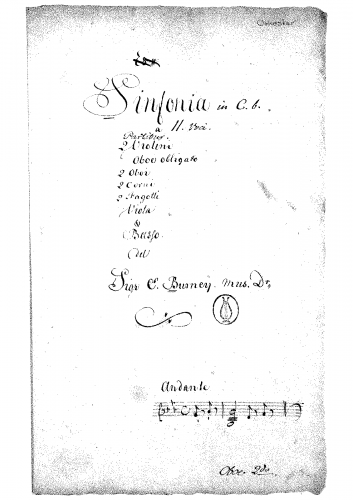 Orchester
Sinfonia in C. b.
à 11. Voci.
Partitur.
2 Violini
Oboe obligato
2 Oboi
2 Corni
2 Fagotti
Viola
&
Basso.
del
Sigr C. Burney. Mus. Dr.
Andante
Oboe 2do